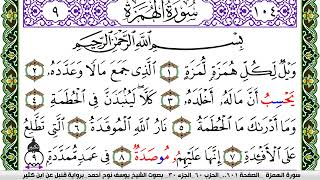 ٩ سُورَةُ الْهُمَزَةِ ١٠٤
بِسْمِ اللَّهِ الرَّحْمَٰنِ الرَّحِيمِ
وَيْلٌ لِّكُلِّ هُمَزَةٍ لُّمَزَةٍ ١ الَّذِي جَمَعَ مَالًا وَعَدَّدَهُ ٢
يَحْسِبُ أَنَّ مَالَهُ أَخْلَدَهُ ٣ كَلَّا لَيُنْبَذَنَّ فِي الْحُطَمَةِ ٤
وَمَا أَدْرَىٰكَ مَا الْحُطَمَةُ ٥ نَارُ اللَّهِ الْمُوقَدَةُ ٦ الَّتِي تَطَّلِعُ
عَلَى الْأَفْئِدَةِ ٧ إِنَّهَا عَلَيْهِمْ مُوصَدَةٌ ٨ فِي عَمَدٍ مُمَدَّدَةٍ ٩
سورة الهمزة الصفحة ٦٠١.. الحزب ٦٠ الجزء ٣٠ بصوت الشيخ يوسف نوح أحمد برواية قنبل عن ابن كثير